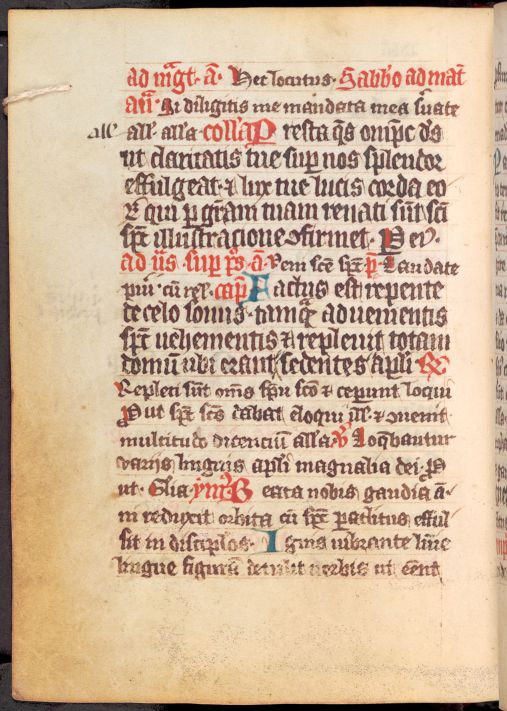 ad mgt· a· Hec locutus· Sabbo ad mat
an· Si diligitis me mandata mea suate
alle all' all'a coll'a Presta qs omps ds
ut claritatis tue sup nos splendor
effulgeat· ⁊ lux tue lucis corda eo
ꝝ qui p gram tuam renati sut sci
spc illustratione ofirmet· Per·
ad us sup ps a· Veni sce spc p· Laudate
pui cu rel· cap Factus est repente
de celo sonus· tamq aduenientis
spc uehementis ⁊ repleuit totam
domu ubi erant sedentes apli
Repleti sut oms spu sco ⁊ ceperut loqui
Put spc scs dabat eloqui ill' ⁊ ouenit
multitudo dicenciu all'a V Loqbantur
varijs linguis apli magnalia dei· P
ut· Glia ymꝰ Beata nobis gaudia a·
ni reduxit orbita cu spc paclitus efful
sit in disciplos· Ignis uibrante lumie
lingue figura detulit uerbis ut eent